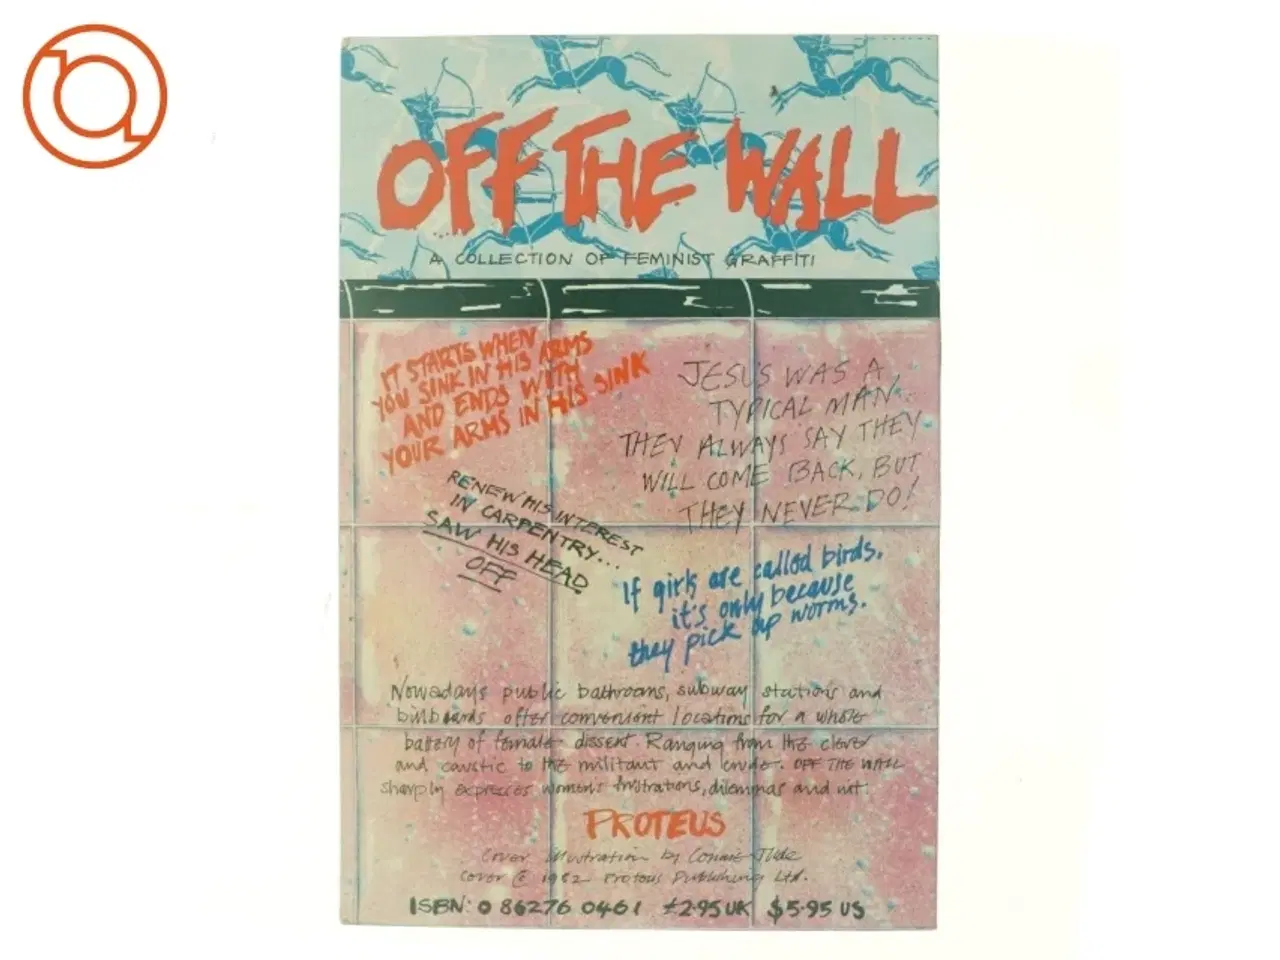 OFF THE WALL
A COLLECTION OF FEMINIST GRAFFITI
IT STARTS WHEN
YOU SINK IN HIS ARMS
AND ENDS WITH
YOUR ARMS IN HIS SINK
JESUS WAS A
TYPICAL MAN..
THEY ALWAYS SAY THEY
WILL COME BACK, BUT
THEY NEVER DO!
RENEW HIS INTEREST
IN CARPENTRY...
SAW HIS HEAD
OFF
If girls are called birds,
it's only because
they pick up worms.
Nowadays public bathrooms, subway stations and
billboards offer convenient locations for a whole
battery of female dissent. Ranging from the clever
and caustic to the militant and crude. OFF THE WALL
sharply expresses women's frustrations, dilemmas and wit.
PROTEUS
Cover illustration by Connie Jude
Cover © 1982 Proteus Publishing Ltd.
ISBN: 0 86276 0461 £2·95 UK $5·95 US